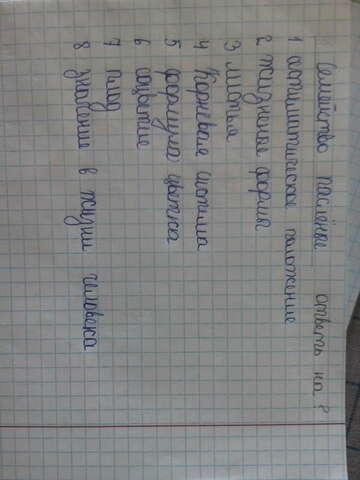 Семейство паслёные ответь на ?
1 систематическое положение
2 жизненые формы
3 листья
4 Корневая система
5 формула цветка
6 соцветие
7 плод
8 значение в жизни человека